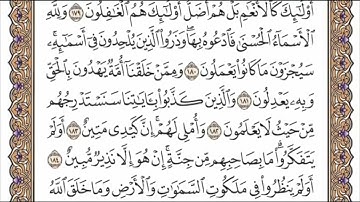 أُوْلَٰٓئِكَ كَٱلْأَنْعَٰمِ بَلْ هُمْ أَضَلُّ أُوْلَٰٓئِكَ هُمُ ٱلْغَٰفِلُونَ ١٧٩ وَلِلَّهِ
ٱلْأَسْمَآءُ ٱلْحُسْنَىٰ فَٱدْعُوهُ بِهَا وَذَرُوا۟ ٱلَّذِينَ يُلْحِدُونَ فِىٓ أَسْمَٰٓئِهِۦ
سَيُجْزَوْنَ مَا كَانُوا۟ يَعْمَلُونَ ١٨٠ وَمِمَّنْ خَلَقْنَآ أُمَّةٌ يَهْدُونَ بِٱلْحَقِّ
وَبِهِۦ يَعْدِلُونَ ١٨١ وَٱلَّذِينَ كَذَّبُوا۟ بِـَٔايَٰتِنَا سَنَسْتَدْرِجُهُم
مِّنْ حَيْثُ لَا يَعْلَمُونَ ١٨٢ وَأُمْلِى لَهُمْ إِنَّ كَيْدِى مَتِينٌ ١٨٣ أَوَلَمْ
يَتَفَكَّرُوا۟ مَا بِصَاحِبِهِم مِّن جِنَّةٍ إِنْ هُوَ إِلَّا نَذِيرٌ مُّبِينٌ ١٨٤
أَوَلَمْ يَنظُرُوا۟ فِى مَلَكُوتِ ٱلسَّمَٰوَٰتِ وَٱلْأَرْضِ وَمَا خَلَقَ ٱللَّهُ